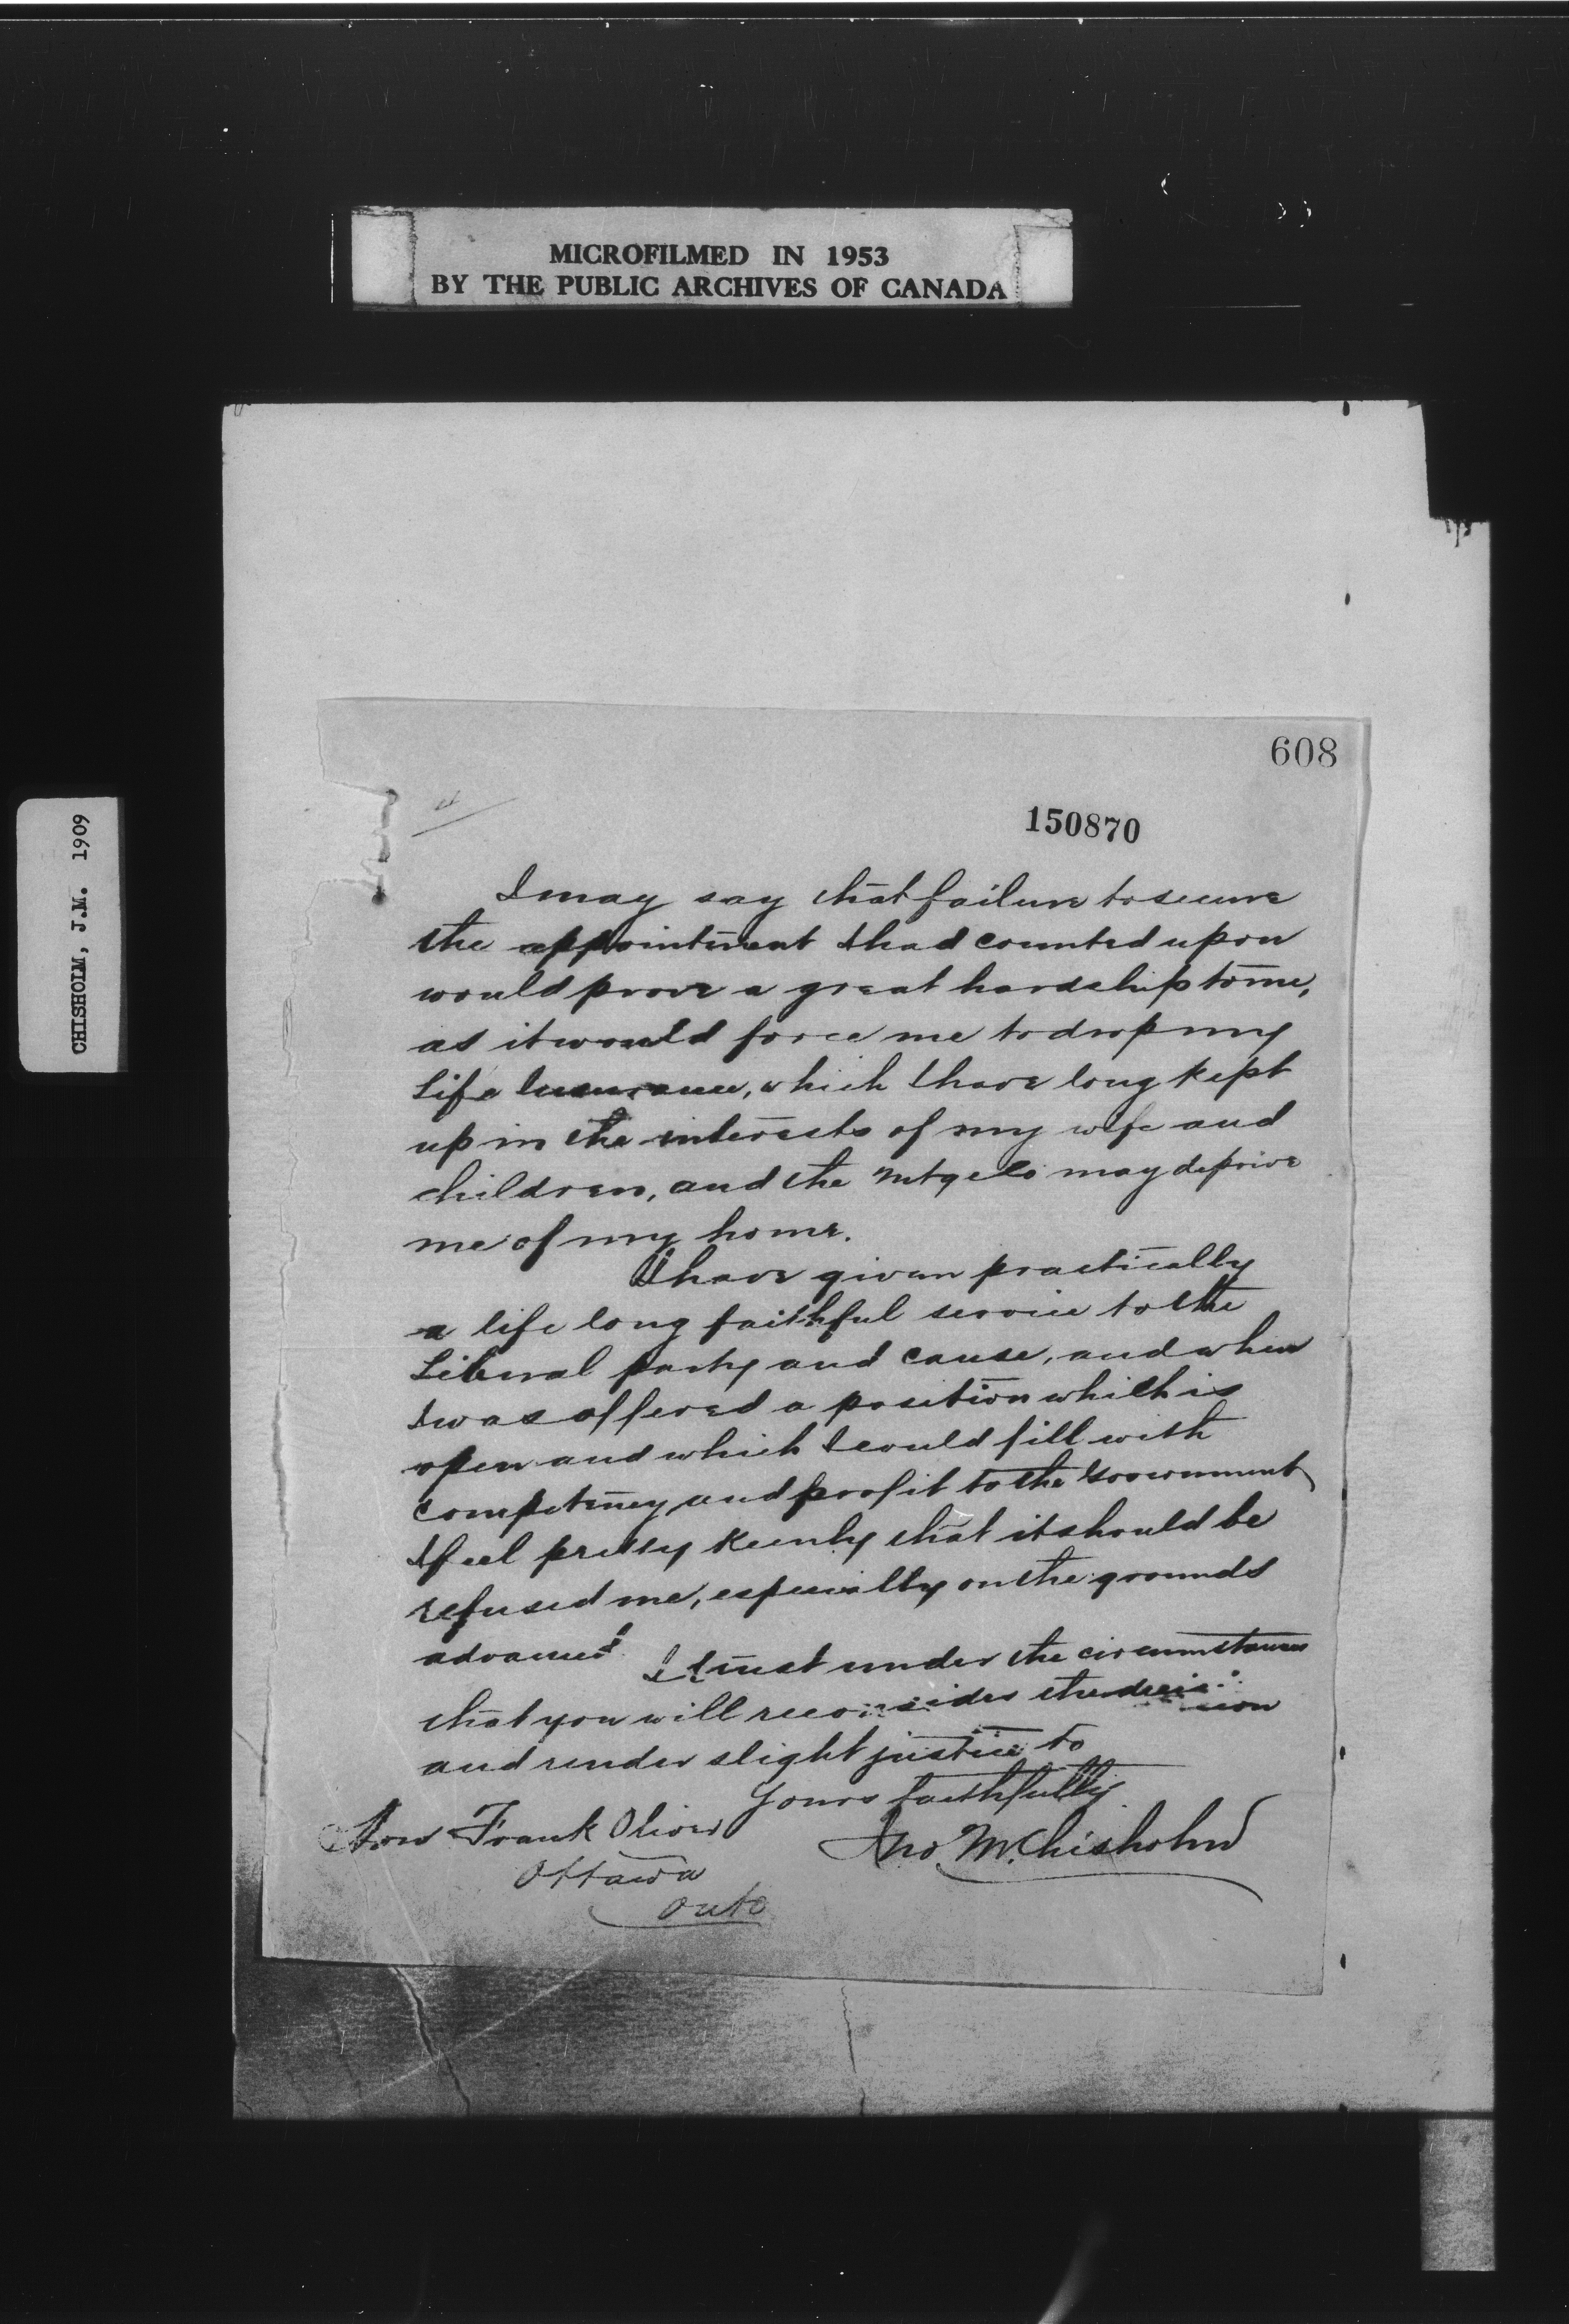 MICROFILMED IN 1953
BY THE PUBLIC ARCHIVES OF CANADA
CHISHOLM, J.M. 1909
608
150870
I may say that failure to secure
the appointment I had counted upon
would prove a great hardship to me,
as it would force me to drop my
Life Insurance, which I have long kept
up in the interests of my wife and
children, and the Mtgees may deprive
me of my home.
I have given practically
a life long faithful service to the
Liberal party and cause, and when
I was offered a position which is
open and which I could fill with
competency and profit to the Government
I feel pretty keenly that it should be
refused me, especially on the grounds
advanced.
I trust under the circumstances
that you will reconsider the decision
and render slight justice to
Yours faithfully
Jno. M. Chisholm
Hon Frank Oliver
Ottawa
Onto